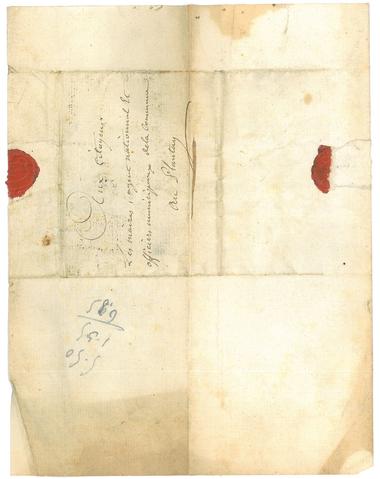 Aux Citoyens
Les maires, agent national &
officiers municipaux de la Commune
Au Plantay
6.85
1.35
5.50